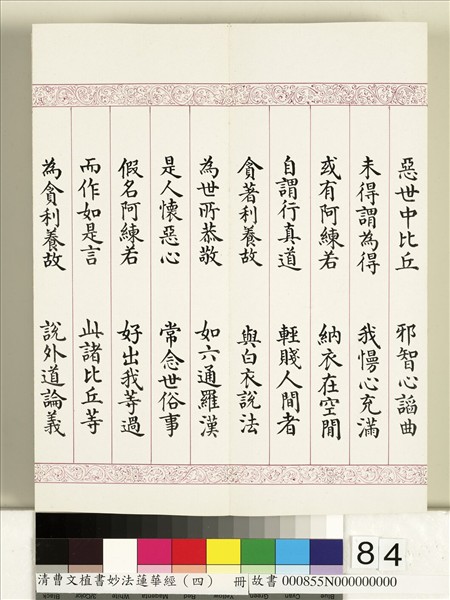 惡世中比丘　邪智心諂曲
未得謂為得　我慢心充滿
或有阿練若　納衣在空閒
自謂行真道　輕賤人間者
貪著利養故　與白衣說法
為世所恭敬　如六通羅漢
是人懷惡心　常念世俗事
假名阿練若　好出我等過
而作如是言　此諸比丘等
為貪利養故　說外道論義
84
清曹文植書妙法蓮華經（四）　冊 故書 000855N000000000